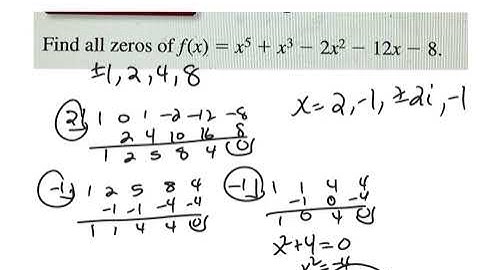 Find all zeros of f(x) = x⁵ + x³ − 2x² − 12x − 8.
±1, 2, 4, 8
x = 2, -1, ±2i, -1
2 | 1 0 1 -2 -12 -8
2 4 10 16 8
1 2 5 8 4 0
-1 | 1 2 5 8 4
-1 -1 -4 -4
1 1 4 4 0
-1 | 1 1 4 4
-1 0 -4
1 0 4 0
x²+4=0
x²=-4